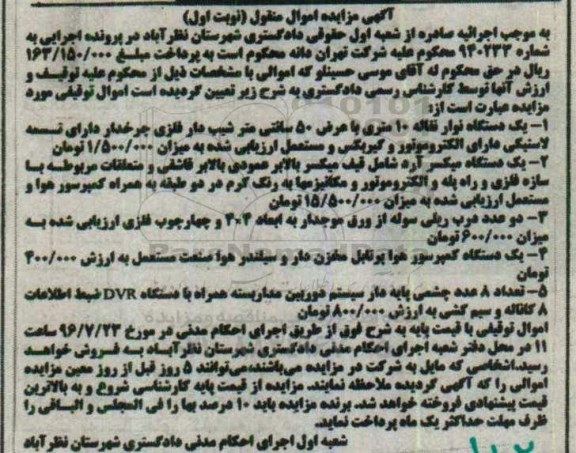 آگهی مزایده اموال منقول (نوبت اول)
به موجب اجرائیه صادره از شعبه اول حقوقی دادگستری شهرستان نظرآباد در پرونده اجرایی به
شماره ۹۴۰۲۳۳ محکوم علیه شرکت تهران دانه محکوم است به پرداخت مبلغ ۱۶۳/۱۵۰/۰۰۰
ریال در حق محکوم له آقای موسی حسینلو که اموالی با مشخصات ذیل از محکوم علیه توقیف و
ارزش آنها توسط کارشناس رسمی دادگستری به شرح زیر تعیین گردیده است اموال توقیفی مورد
مزایده عبارت است از:
۱- یک دستگاه نوار نقاله ۱۰ متری با عرض ۵۰ سانتی متر شیب دار فلزی چرخدار دارای تسمه
لاستیکی دارای الکتروموتور و گیربکس و مستعمل ارزیابی شده به میزان ۱/۵۰۰/۰۰۰ تومان
۲- یک دستگاه میکسر آرد شامل قیف میکسر بالابر عمودی بالابر قاشقی و متعلقات مربوطه با
سازه فلزی و راه پله و الکتروموتور و مکانیزمها به رنگ کرم در دو طبقه به همراه کمپرسور هوا و
مستعمل ارزیابی شده به میزان ۱۵/۵۰۰/۰۰۰ تومان
۳- دو عدد درب ریلی سوله از ورق موجدار به ابعاد ۴*۴ و چهارچوب فلزی ارزیابی شده به
میزان ۶۰۰/۰۰۰ تومان
۴- یک دستگاه کمپرسور هوا پرتابل مخزن دار و سیلندر هوا صنعت مستعمل به ارزش ۴۰۰/۰۰۰
تومان
۵- تعداد ۸ عدد چشمی پایه دار سیستم دوربین مداربسته همراه با دستگاه DVR ضبط اطلاعات
۸ کاناله و سیم کشی به ارزش ۸۰۰/۰۰۰ تومان
اموال توقیفی با قیمت پایه به شرح فوق از طریق اجرای احکام مدنی در مورخ ۹۶/۷/۲۳ ساعت
۱۱ در محل دفتر شعبه اجرای احکام مدنی دادگستری شهرستان نظرآباد به فروش خواهد
رسید.اشخاصی که مایل به شرکت در مزایده می‌باشند،می‌توانند ۵ روز قبل از روز معین مزایده
اموالی را که آگهی گردیده ملاحظه نمایند. مزایده از قیمت پایه کارشناسی شروع و به بالاترین
قیمت پیشنهادی فروخته خواهد شد. برنده مزایده باید ۱۰ درصد بها را فی المجلس و الباقی را
ظرف مهلت حداکثر یک ماه پرداخت نماید.
شعبه اول اجرای احکام مدنی دادگستری شهرستان نظرآباد